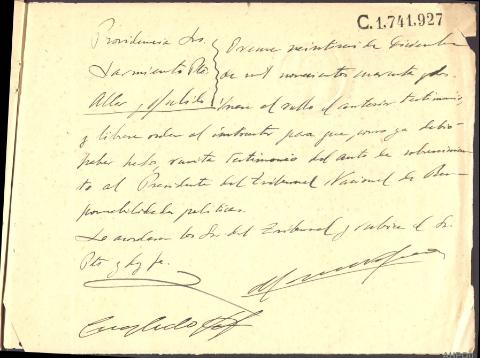 C.1.741.927
Providencia Srs.
Sarmiento Pte.
Aller y Pulido
Orense veintitres de Diciembre
de mil novecientos cuarenta y dos.
Unase al rollo el anterior testimonio
y librese orden al instructor para que, como ya debio
haber hecho, remita testimonio del auto de sobreseimien
to al Presidente del Tribunal Nacional de Res
ponsabilidades politicas.
Lo acordaron los Srs. del Tribunal y rubrica el Sr.
Pte. y doy fe.